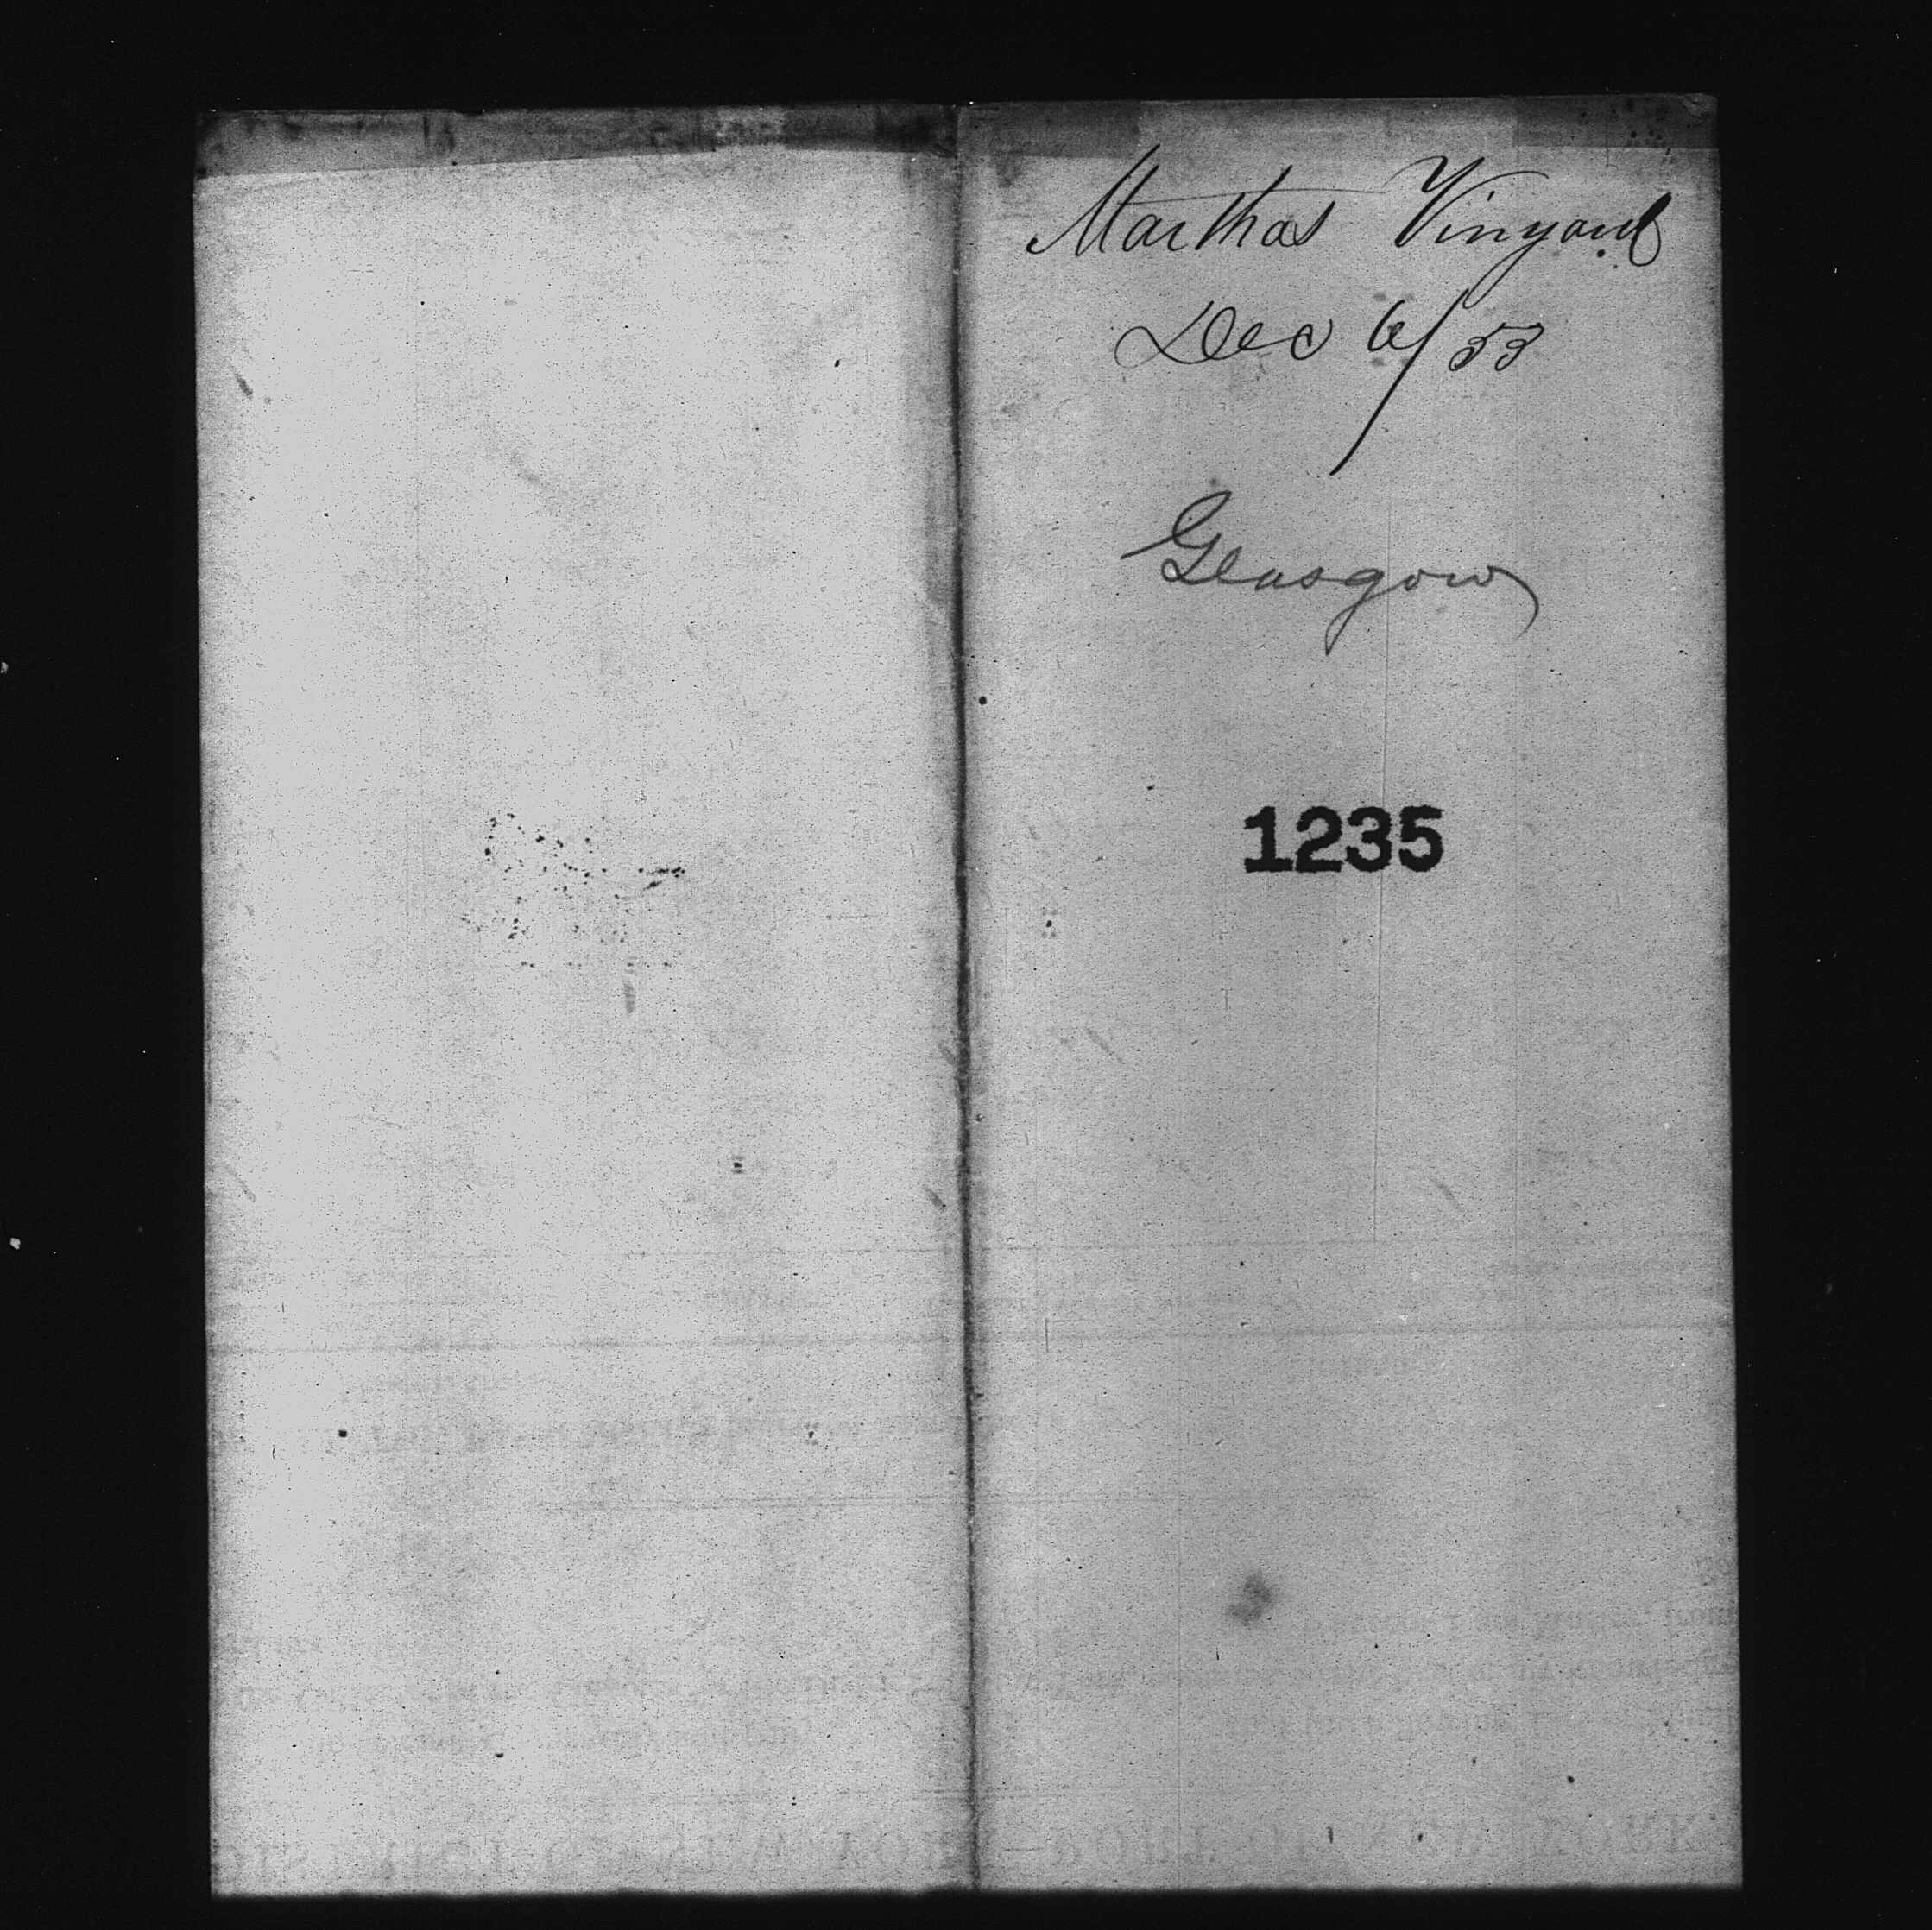 Marthas Vinyard
Dec 6/53
Glasgow
1235